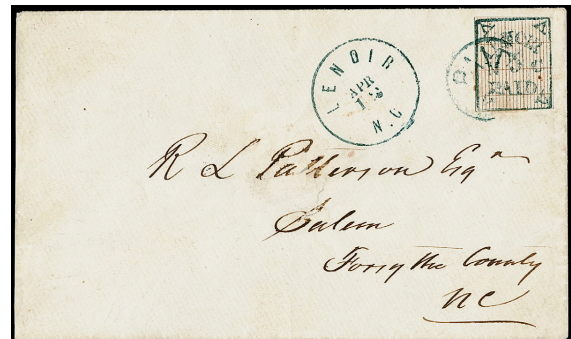 LENOIR
APR
12
N.C
PAID
PAID
R L Patterson Esqr
Salem
Forsythe County
NC